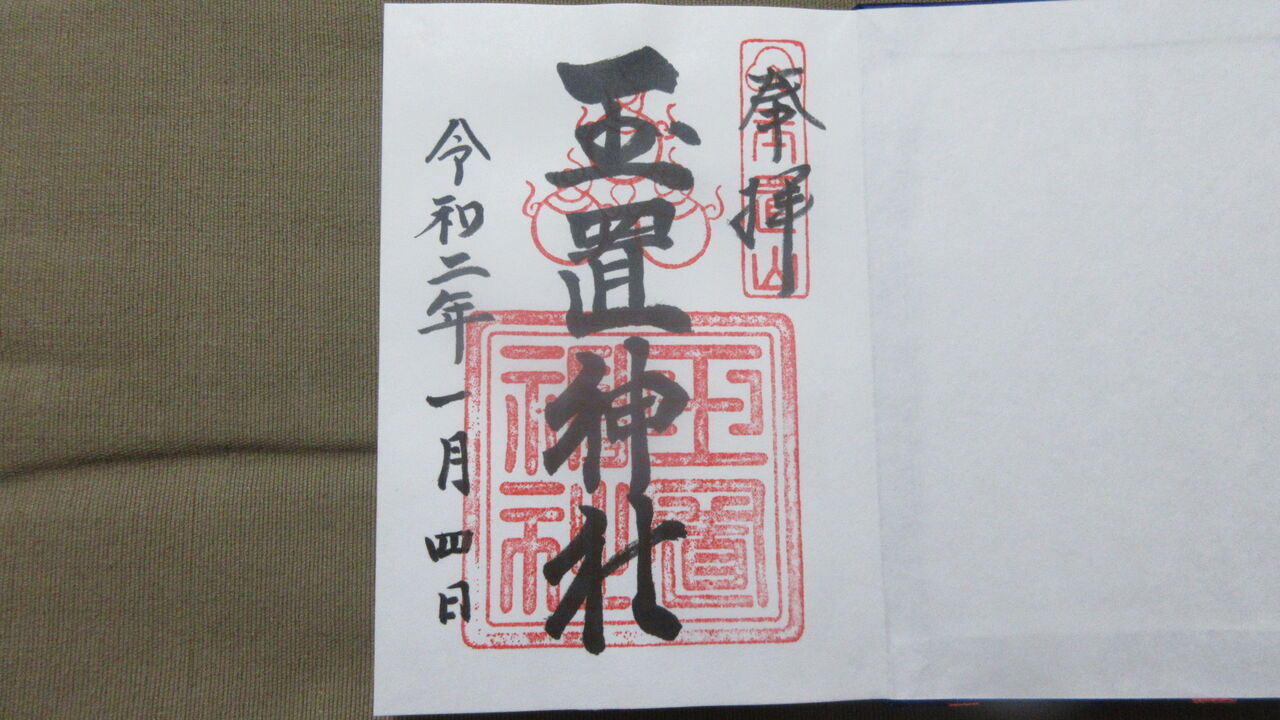 奉拝
玉置神社
玉置神社
令和二年一月四日